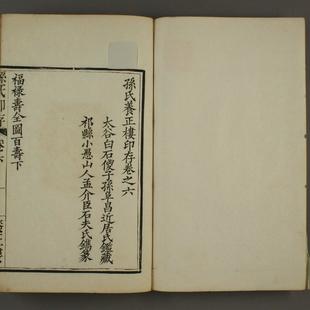 孫氏養正樓印存卷之六
太谷白石傻子孫阜昌近居氏鑑藏
祁縣小愚山人孟介臣石夫氏鐫篆
福祿壽全圖百壽下
孫氏印存 卷六